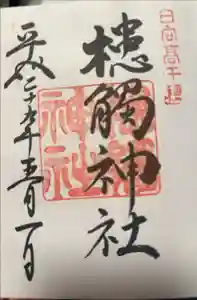 日向高千穂
槵觸神社
平成二十九年五月一日